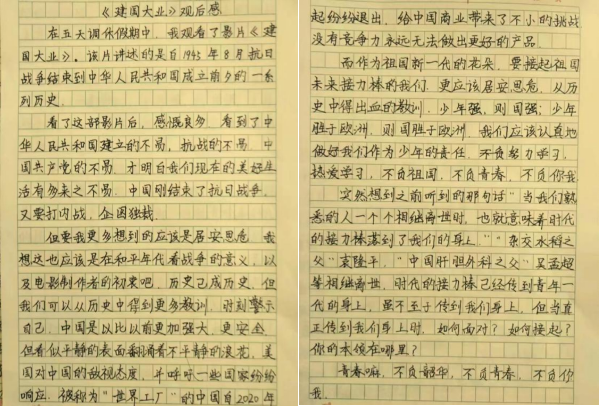 《建国大业》观后感
在五天调休假期中，我观看了影片《建
国大业》。该片讲述的是自1945年8月抗日
战争结束到中华人民共和国成立前夕的一系
列历史。
看了这部影片后，感慨良多，看到了中
华人民共和国建立的不易，抗战的不易，中
国共产党的不易，才明白我们现在的美好生
活有多么来之不易，中国刚结束了抗日战争，
又要打内战，企图独裁。
但要我更多想到的应该是居安思危，我
想这也应该是在和平年代看战争的意义，以
及电影制作者的初衷吧，历史已成历史，但
我们可以从历史中得到更多教训，时刻警示
自己，中国是以比以前更加强大、更安全
但看似平静的表面翻涌着不平静的浪花，美
国对中国的敌视态度，并呼吁一些国家纷纷
响应，被称为“世界工厂”的中国自2020年
起纷纷退出，给中国商业带来了不小的挑战
没有竞争力永远无法做出更好的产品。
而作为祖国新一代的花朵，要接起祖国
未来接力棒的我们，更应该居安思危，从历
史中得出血的教训，少年强，则国强；少年
胜于欧洲，则国胜于欧洲，我们应该认真地
做好我们作为少年的责任，不负努力学习，
热爱学习，不负祖国，不负青春，不负你我
突然想到之前听到的那句话“当我们熟
悉的人一个个相继离世时，也就意味着时代
的接力棒落到了我们的身上。”“杂交水稻之
父”袁隆平，“中国肝胆外科之父”吴孟超
等相继离世，时代的接力棒已经传到青年一
代的身上，虽不至于传到我们身上，但当真
正传到我们身上时，如何面对？如何接起？
你的本领在哪里？
青春嘛，不负韶华，不负青春，不负你
我。